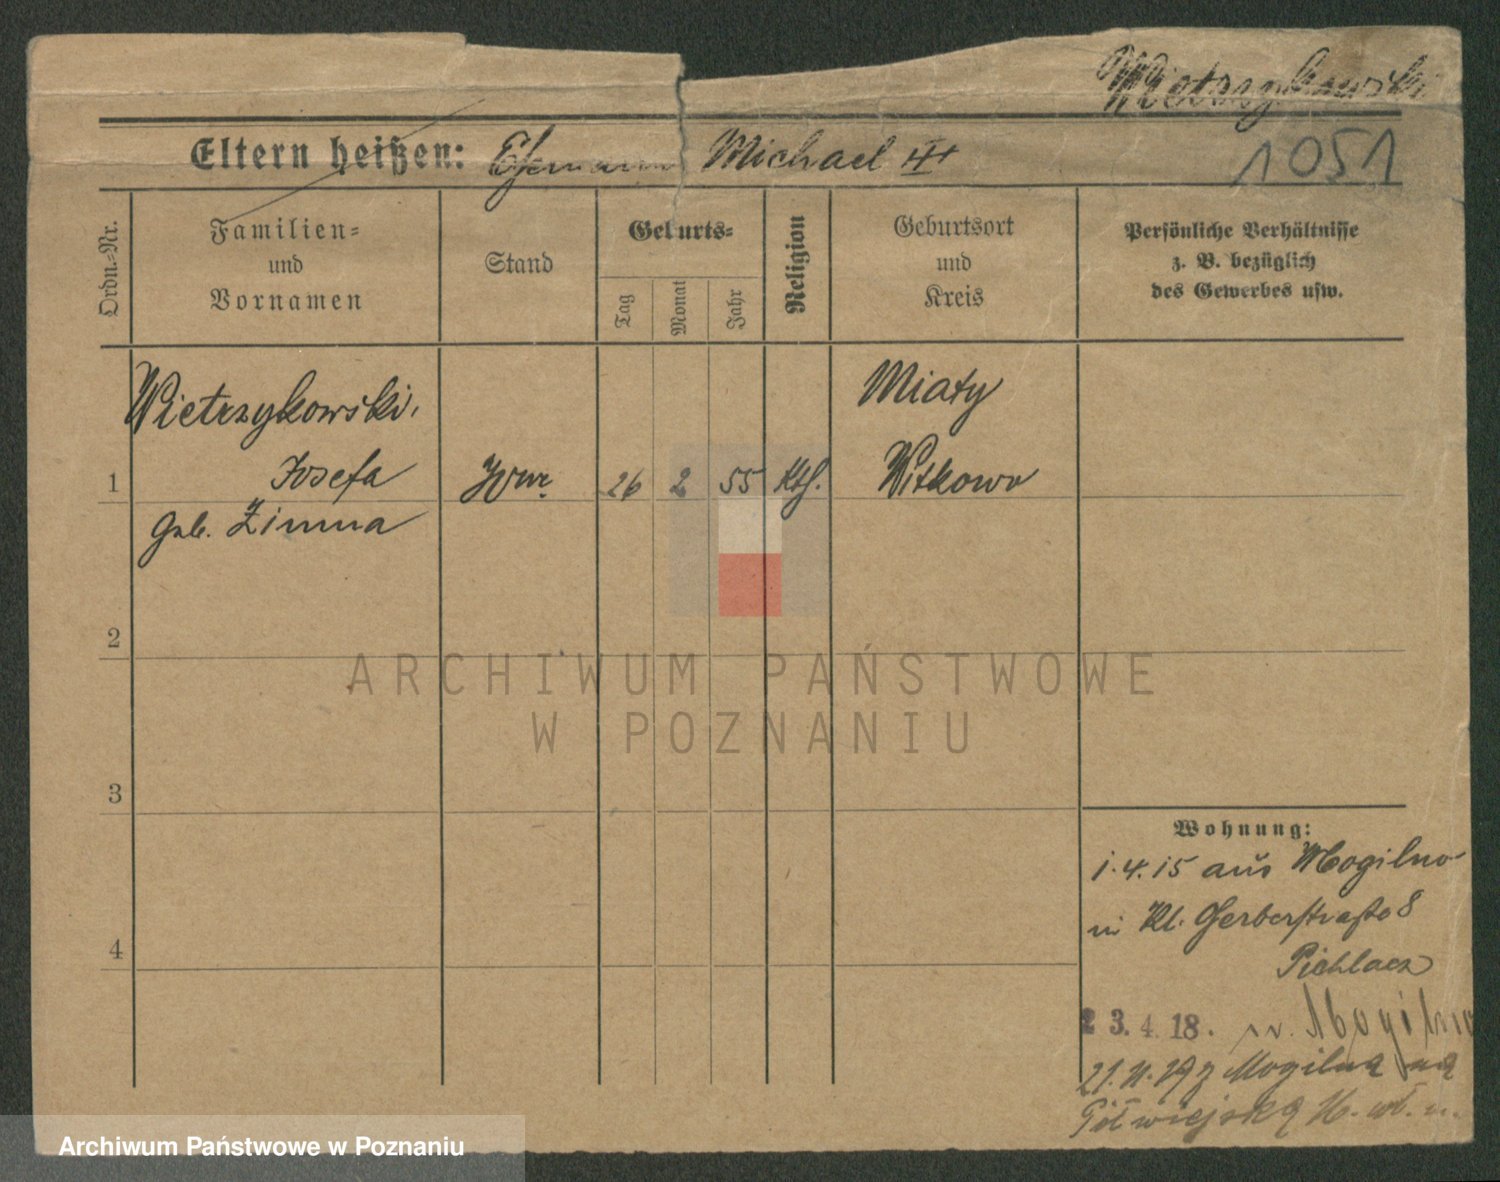 Wietrzykowski
Eltern heißen: Ehemann Michael III
1051
Ordn.-Nr.
Familien-
und
Vornamen
Stand
Geburts-
Tag
Monat
Jahr
Religion
Geburtsort
und
Kreis
Persönliche Verhältnisse
z. B. bezüglich
des Gewerbes usw.
Wietrzykowski,
Miaty
1 Josefa Wwe. 26 2 55 Kth. Witkowo
geb. Zimna
2
ARCHIWUM PAŃSTWOWE
W POZNANIU
3
Wohnung:
1.4.15 aus Mogilno
in Kl. Gerberstraße 8
4
23.4.18. n. Mogilno
Mogilna na
Półwiejską
Archiwum Państwowe w Poznaniu